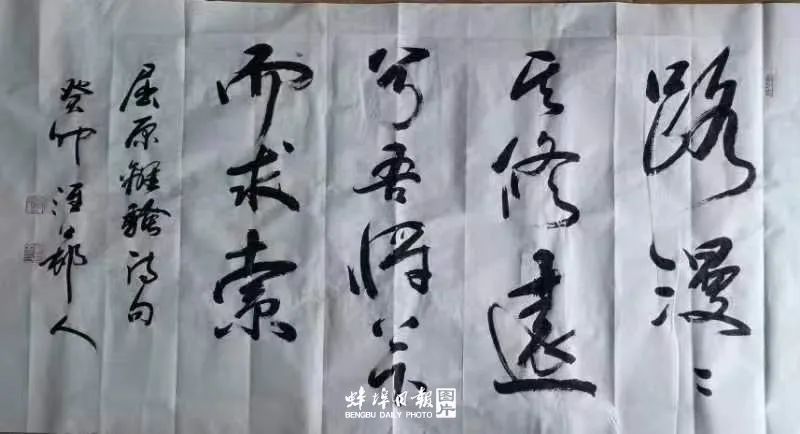 路漫〻
其修遠
兮吾將上下
而求索
屈原離騷诗句
癸卯 邨人
蚌埠日報 图片
BENGBU DAILY PHOTO